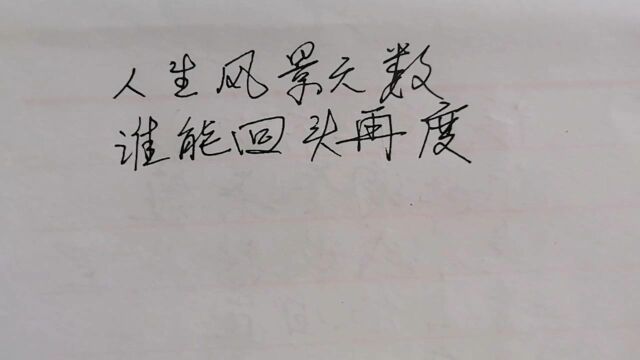 人生风景无数
谁能回头再度